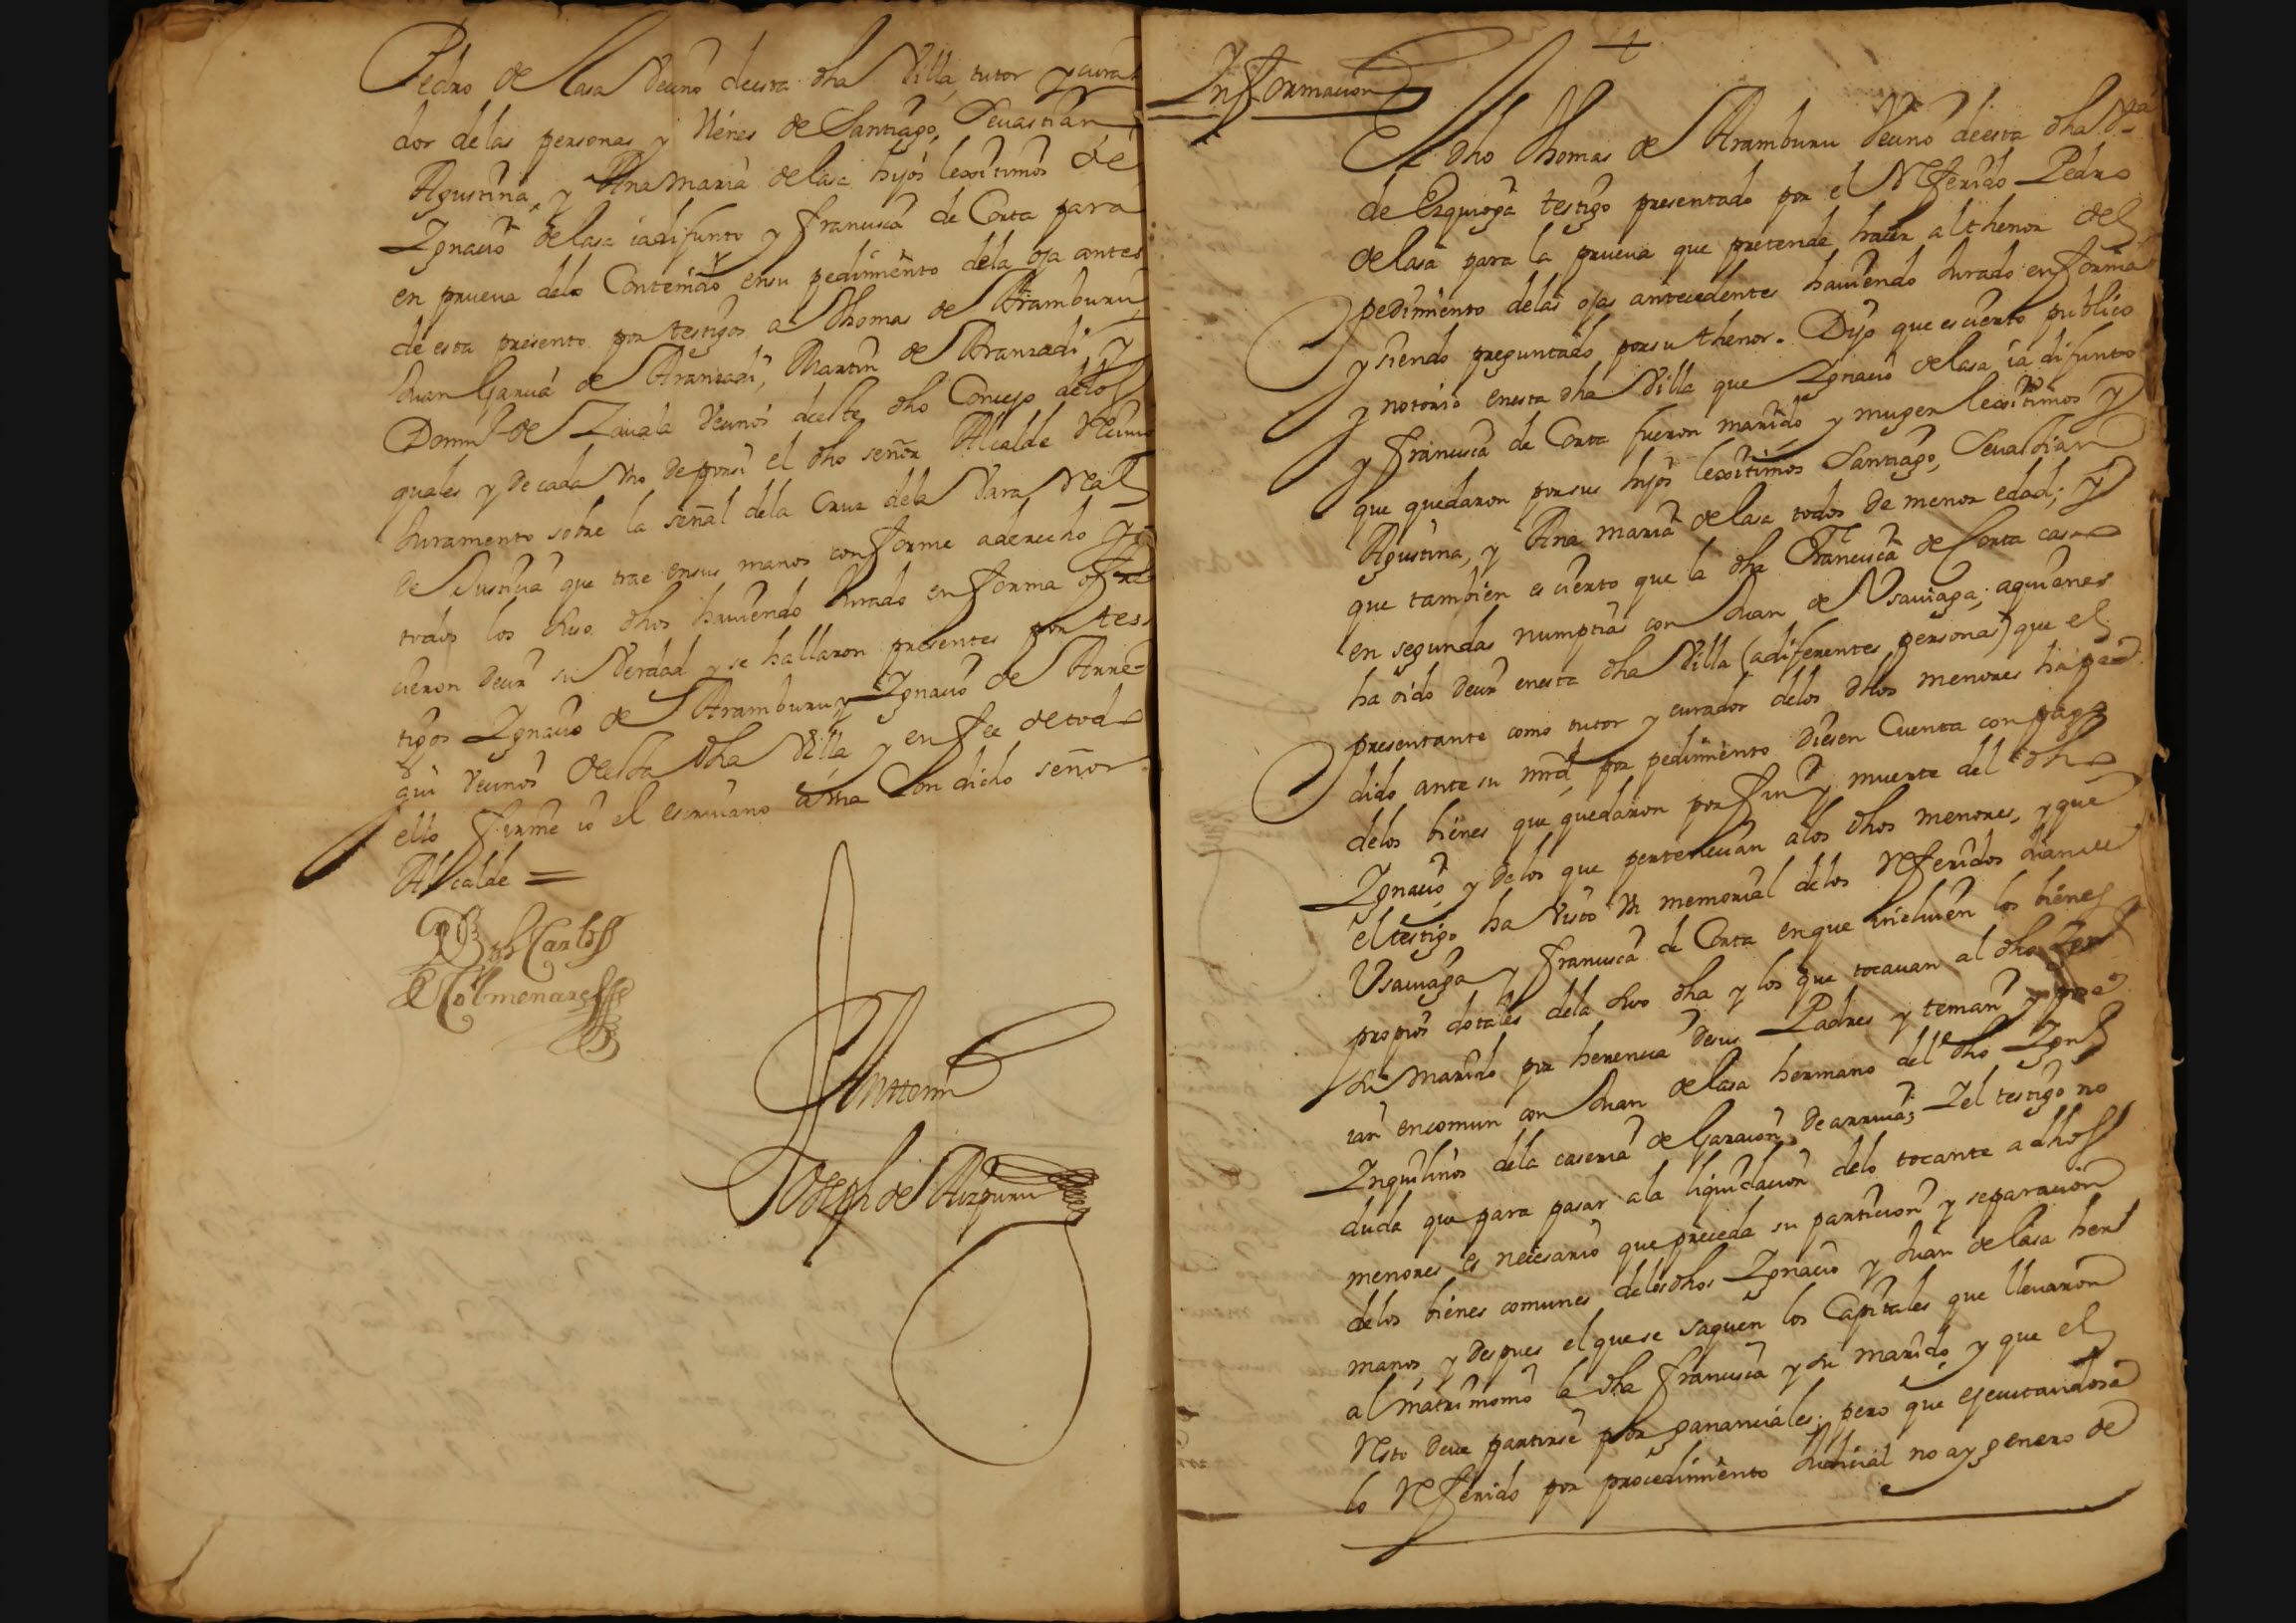 Pedro de lasa Vecino deesta dha Villa, tutor y cura
dor delas personas y Vienes de Santiago, Sevastian,
Agustina, y Ana Maria delasa hijos lexitimos de
Ygnacio delasa ia difunto y francisca de Corta para
en prueva delo Contenido ensu pedimiento dela oja antes
de esta presento por testigos a Thomas de Aramburu,
Juan Garcia de Aranzadi, Martin de Aranzadi, y
Domin.º de Zavala Vecinos deeste dho Concejo delos
quales y de cada Vno de porsi el dho señor Alcalde Recivio
Juramento sobre la señal dela Cruz dela Vara Real
de Justicia que trae ensus manos conforme aderecho y
todos los suso dhos haviendo Jurado en forma ofre
cieron decir su Verdad y se hallaron presentes por tes
tigos Ygnacio de Aramburu y Ygnacio de Arre
gui Vecinos deesta dha Villa y en fee de todo
ello firme io el escrivano a una Con dicho señor
Alcalde =
Carlos
Colmenares
Antemi
Joseph de Aizpuru
Informacion
El dho Thomas de Aramburu Vecino deesta dha Vª
de Ezquioga testigo presentado por el Referido Pedro
delasa para la prueva que pretende hacer althenor del
pedimiento delas ojas antecedentes haviendo Jurado en forma
y siendo preguntado porsu thenor. Dijo que es cierto publico
y notorio enesta dha Villa que Ygnacio delasa ia difunto
y francisca de Corta fueron marido y muger lexitimos y
que quedaron porsus hijos lexitimos Santiago, Sevastian
Agustina, y Ana maria delasa todos de menor edad; y
que tambien es cierto que la dha Francisca de Corta caso
en segundas numptias con Juan de Vsaviaga; aquienes
ha oido decir enesta dha Villa (adiferentes personas) que el
presentante como tutor y curador delos dhos menores ha pe
dido ante su mrd, por pedimiento diesen Cuenta con pago
delos bienes que quedaron por fin y muerte del dho
Ygnacio, y delos que pertenecian alos dhos menores, y que
el testigo ha Visto Vn memorial delos Referidos Juan de
Vsaviaga y francisca de Corta enque incluien los bienes
propios dotales dela suso dha y los que tocavan al dho
su marido por herencia desus Padres y tenian y pose
ian encomun con Juan delasa hermano del dho Ygn.º
Ynquilinos dela caseria de Garacion, de arriva; Y el testigo no
duda que para pasar ala liquidacion delo tocante adhos
menores es necesario que preceda su particion y separacion
delos bienes comunes delos dhos Ygnacio y Juan delasa her
manos, y despues el que se saquen los Capitales que llevaron
al matrimonio la dha francisca y su marido y que el
Resto deve partirse por gananciales; pero que ejecutandose
lo Referido por procedimiento Judicial no ay genero de